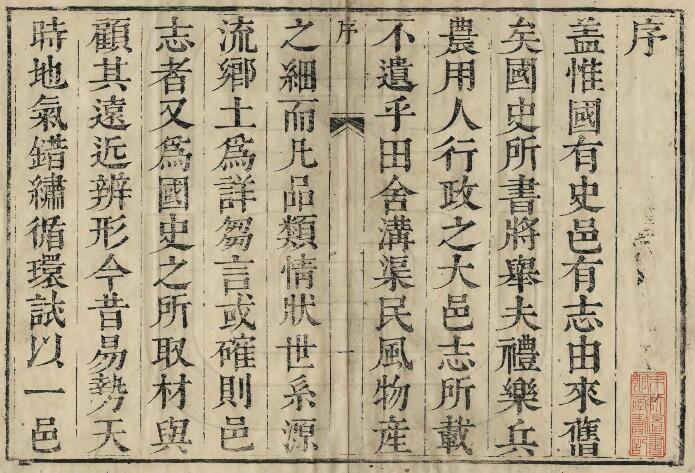 序
盖惟國有史邑有志由來舊
矣國史所書將舉夫禮樂兵
農用人行政之大邑志所載
不遺乎田舍溝渠民風物産
序
一
之細而凡品類情狀世系源
流鄉土為詳芻言或確則邑
志者又為國史之所取材與
顧其遠近辨形今昔易勢天
時地氣錯繡循環試以一邑